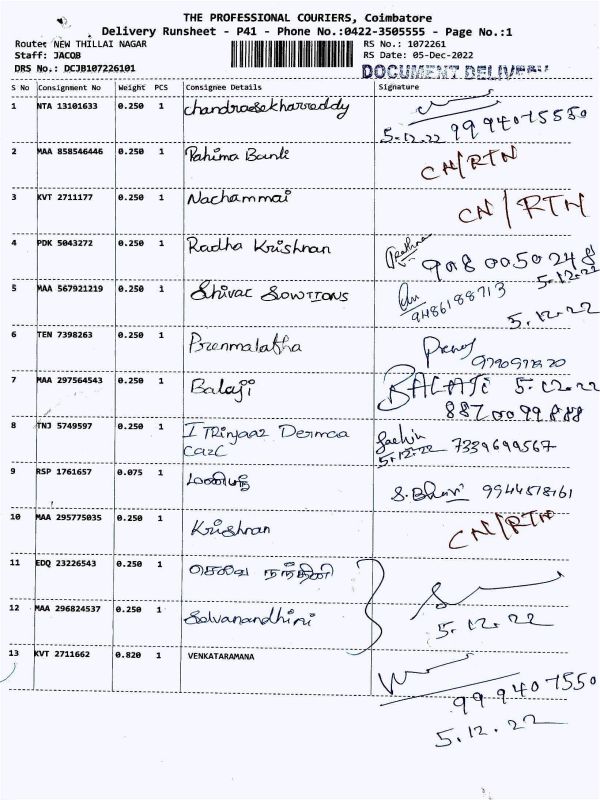 THE PROFESSIONAL COURIERS, Coimbatore
Delivery Runsheet - P41 - Phone No.:0422-3505555 - Page No.:1
Route: NEW THILLAI NAGAR RS No.: 1072261
Staff: JACOB RS Date: 05-Dec-2022
DRS No.: DCJB107226101 DOCUMENT DELIVERY
S No Consignment No Weight PCS Consignee Details Signature
1 NTA 13101633 0.250 1 chandrasekharreddy
5.12.22 9994075550
2 MAA 858546446 0.250 1 Rahima Banli CN/RTN
3 KVT 2711177 0.250 1 Nachammai CN/RTN
4 PDK 5043272 0.250 1 Radha Krishnan 9080050248
5.12.22
5 MAA 567921219 0.250 1 Shivac SOLUTIONS 9486188713
5.12.22
6 TEN 7398263 0.250 1 Premalatha
7 MAA 297564543 0.250 1 Balaji BALAJI 5.12.22
8870099888
8 TNJ 5749597 0.250 1 7339699567
5.12.22
9 RSP 1761657 0.075 1 S. Bhavi
10 MAA 295775035 0.250 1 Krishnan CN/RTN
11 EDQ 23226543 0.250 1 செல்வ நந்தினி
12 MAA 296824537 0.250 1 Selvanandhini 5.12.22
13 KVT 2711662 0.820 1 VENKATARAMANA
999407550
5.12.22